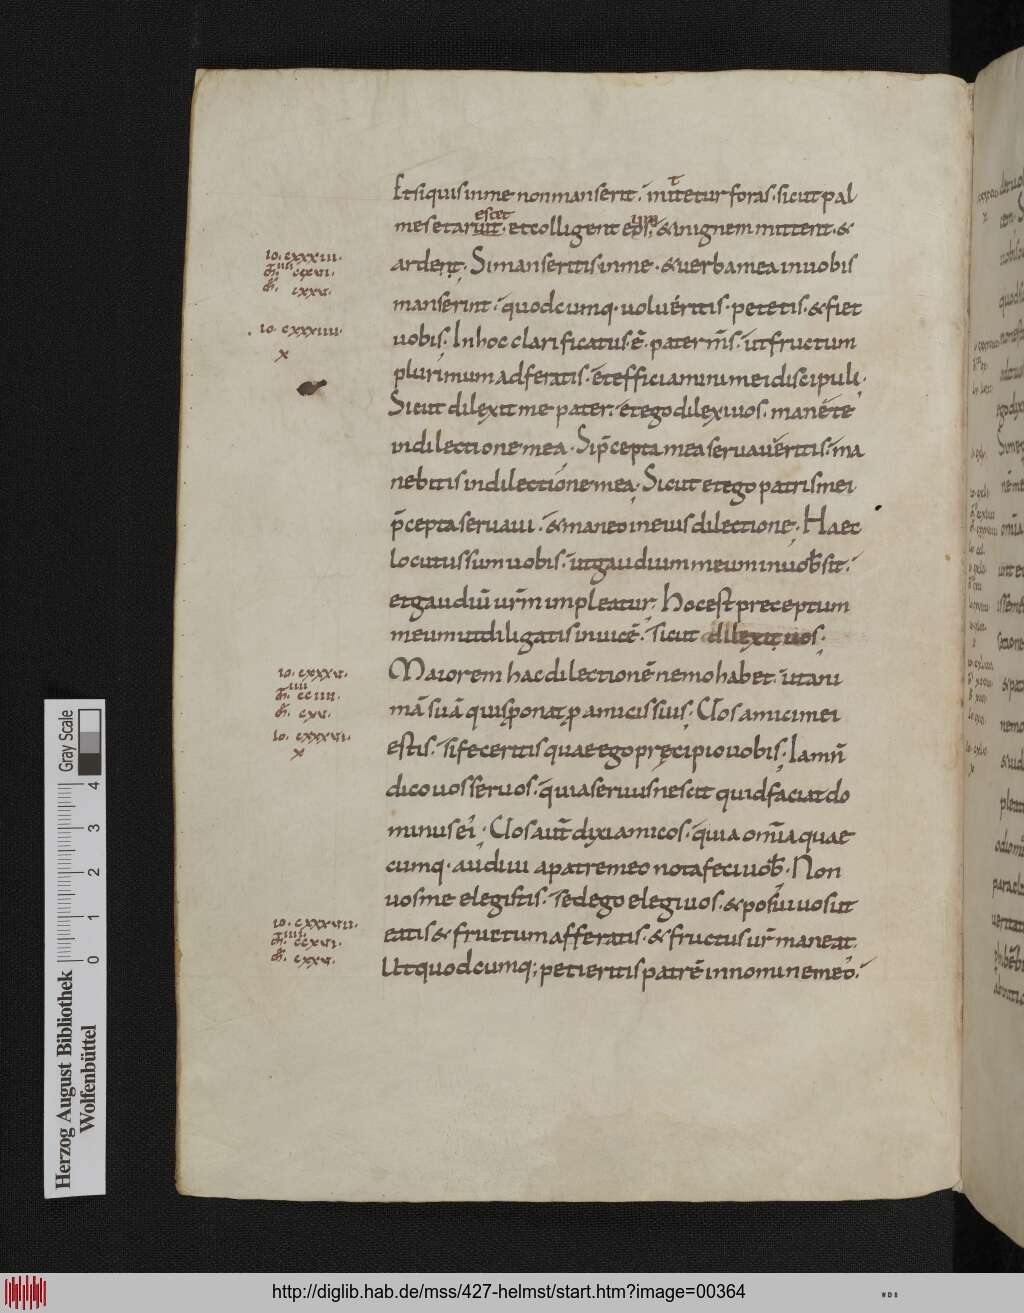 Et siquis in me non manserit · mittetur foras · sicut pal
mes et aruit · et colligent eos; & in ignem mittent · &
ardent · Si manseritis in me · & uerba mea in uobis
manserint · quodcumq· uolueritis · petetis · & fiet
uobis · In hoc clarificatus · ē · pater m̄s · ut fructum
plurimum adferatis · et efficiamini mei discipuli ·
Sicut dilexit me pater · et ego dilexi uos · manete
in dilectione mea · Si p̄cepta mea seruaueritis · ma
nebitis in dilectione mea · Sicut et ego patris mei
p̄cepta seruaui · & maneo in eius dilectione · Haec
locutus sum uobis · ut gaudium meum in uob sit ·
et gaudiū ur̄m impleatur · Hoc est preceptum
meum ut diligatis inuicē · sicut dilexit uos ·
Maiorem hac dilectionē nemo habet · ut ani
mā suā quis ponat p amicis suis · Uos amici mei
estis · si feceritis quae ego pręcipio uobis · Iam n̄
dico uos seruos · quia seruus nescit quid faciat do
minus ei · Uos aut̄ dixi amicos · quia om̄ia quae
cumq· audiui a patre meo nota feci uob · Non
uos me elegistis · sed ego elegi uos · & posui uos ut
eatis & fructum afferatis · & fructus ur̄ maneat
Ut quodcumq; petieritis patrē in nomine meo ·
estet
t
Io. cxxxiii.
cxxx.
Io. cxxxiiii.
x
Io. cxxxv.
cciiii.
cxv.
Io. cxxxvi.
x
Io. cxxxvii.
ccxvi.
cxxv.
Herzog August Bibliothek
Wolfenbüttel
0 1 2 3 4
Gray Scale
http://diglib.hab.de/mss/427-helmst/start.htm?image=00364
WDB